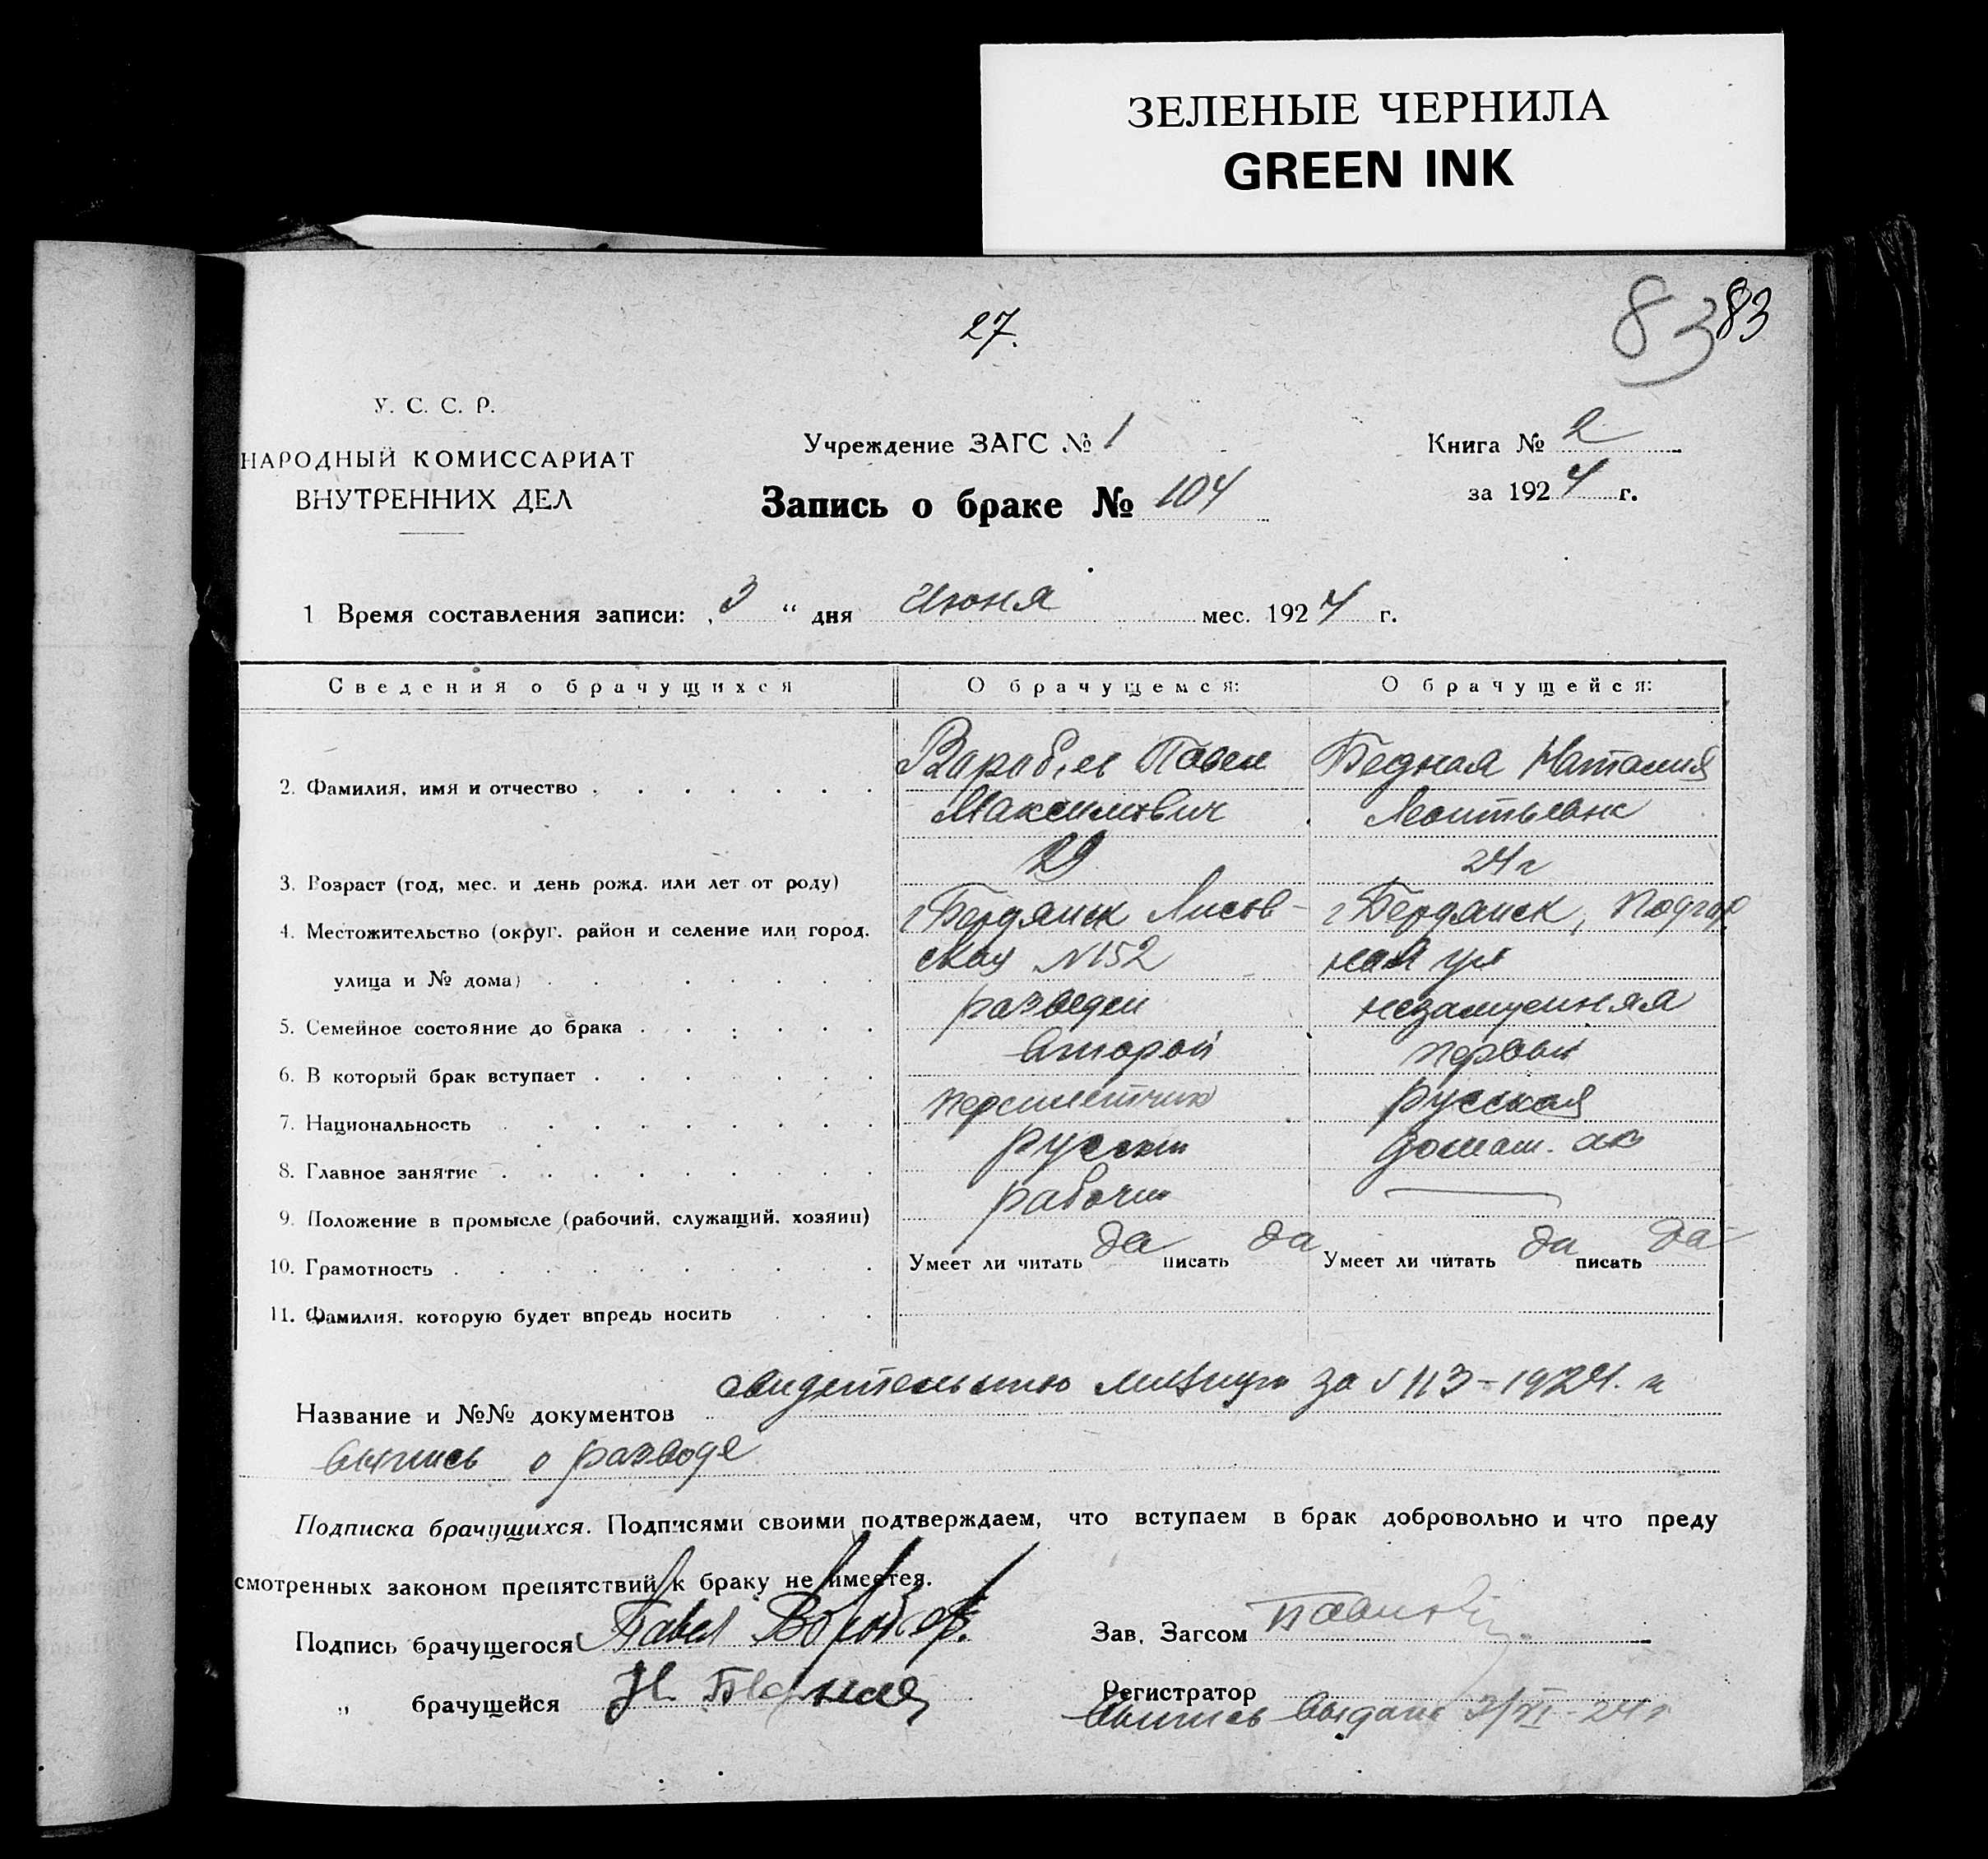 ЗЕЛЕНЫЕ ЧЕРНИЛА
GREEN INK
27.
83 83
У. С. С. Р.
НАРОДНЫЙ КОМИССАРИАТ
ВНУТРЕННИХ ДЕЛ
Учреждение ЗАГС № 1
Книга № 2
Запись о браке № 104
за 1924 г.
1 Время составления записи: „3 “ дня Июня мес. 1924 г.
Сведения о брачущихся О брачущемся: О брачущейся:
2. Фамилия, имя и отчество Вароб,ев Павел Бедная Наталия
Максимович Леонтьевна
29 24 г
3. Возраст (год, мес. и день рожд. или лет от роду)
г Бердянск Лисков- г Бердянск, Подгор
4. Местожительство (округ, район и селение или город,
ская №152 ная ул
улица и № дома)
разведен незамужняя
5. Семейное состояние до брака
второй первый
6. В который брак вступает
переплетчик русская
7. Национальность
русский домаш. хоз
8. Главное занятие
рабочий
9. Положение в промысле (рабочий, служащий, хозяин)
10. Грамотность Умеет ли читать да писать да Умеет ли читать да писать да
11. Фамилия, которую будет впредь носить
Название и №№ документов свидетельство милиции за № 113-1924. и
выпись о разводе
Подписка брачущихся. Подписями своими подтверждаем, что вступаем в брак добровольно и что преду
смотренных законом препятствий к браку не имеется.
Подпись брачущегося Павел Воробьев.
Зав. Загсом
„ брачущейся Н. Бедная
Регистратор
Выпись выдана 3/VI-24 г